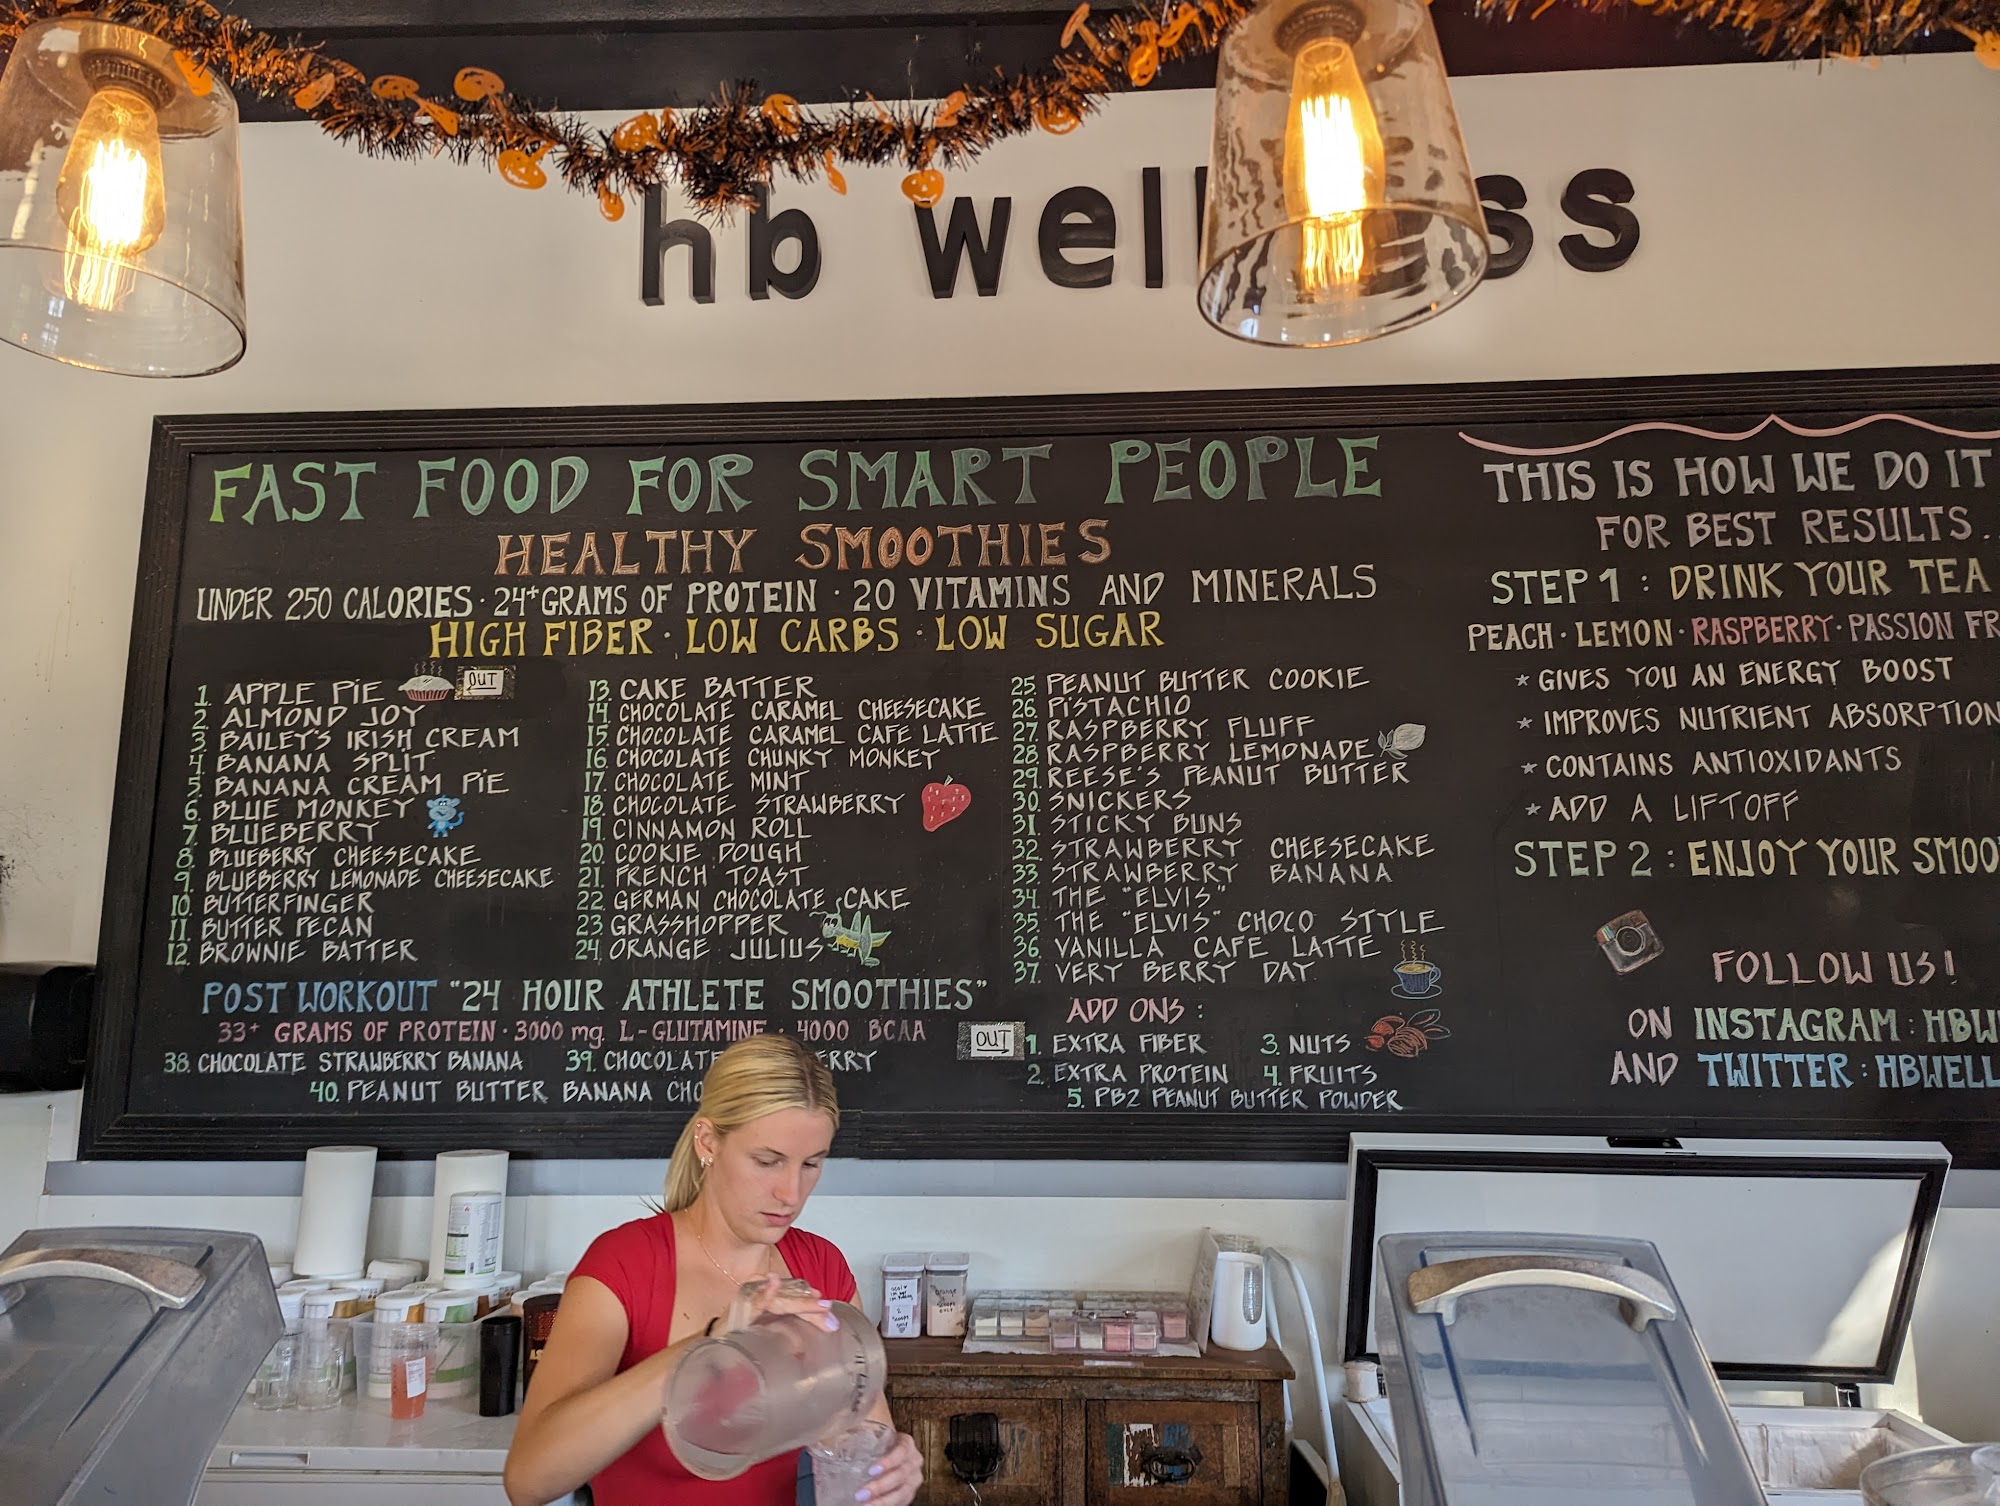 hb wellness
FAST FOOD FOR SMART PEOPLE
HEALTHY SMOOTHIES
UNDER 250 CALORIES · 24+ GRAMS OF PROTEIN · 20 VITAMINS AND MINERALS
HIGH FIBER · LOW CARBS · LOW SUGAR
1. APPLE PIE OUT
2. ALMOND JOY
3. BAILEY'S IRISH CREAM
4. BANANA SPLIT
5. BANANA CREAM PIE
6. BLUE MONKEY
7. BLUEBERRY
8. BLUEBERRY CHEESECAKE
9. BLUEBERRY LEMONADE CHEESECAKE
10. BUTTERFINGER
11. BUTTER PECAN
12. BROWNIE BATTER
13. CAKE BATTER
14. CHOCOLATE CARAMEL CHEESECAKE
15. CHOCOLATE CARAMEL CAFE LATTE
16. CHOCOLATE CHUNKY MONKEY
17. CHOCOLATE MINT
18. CHOCOLATE STRAWBERRY
19. CINNAMON ROLL
20. COOKIE DOUGH
21. FRENCH TOAST
22. GERMAN CHOCOLATE CAKE
23. GRASSHOPPER
24. ORANGE JULIUS
25. PEANUT BUTTER COOKIE
26. PISTACHIO
27. RASPBERRY FLUFF
28. RASPBERRY LEMONADE
29. REESE'S PEANUT BUTTER
30. SNICKERS
31. STICKY BUNS
32. STRAWBERRY CHEESECAKE
33. STRAWBERRY BANANA
34. THE "ELVIS"
35. THE "ELVIS" CHOCO STYLE
36. VANILLA CAFE LATTE
37. VERY BERRY DAY
POST WORKOUT "24 HOUR ATHLETE SMOOTHIES"
33+ GRAMS OF PROTEIN · 3000 mg. L-GLUTAMINE · 4000 BCAA
38. CHOCOLATE STRAWBERRY BANANA 39. CHOCOLATE
40. PEANUT BUTTER BANANA
ADD ONS:
OUT 1. EXTRA FIBER 3. NUTS
2. EXTRA PROTEIN 4. FRUITS
5. PB2 PEANUT BUTTER POWDER
THIS IS HOW WE DO IT
FOR BEST RESULTS..
STEP 1 : DRINK YOUR TEA
PEACH · LEMON · RASPBERRY · PASSION FR
* GIVES YOU AN ENERGY BOOST
* IMPROVES NUTRIENT ABSORPTION
* CONTAINS ANTIOXIDANTS
* ADD A LIFTOFF
STEP 2 : ENJOY YOUR SMOO
FOLLOW US!
ON INSTAGRAM : HBW
AND TWITTER : HBWELL